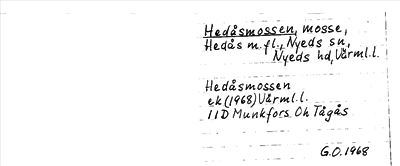 Hedåsmossen, mosse,
Hedås m.fl., Nyeds sn,
Nyeds hd, Värml.l.
Hedåsmossen
ek (1968) Värml.l.
11D Munkfors Oh Tågås
G.O. 1968